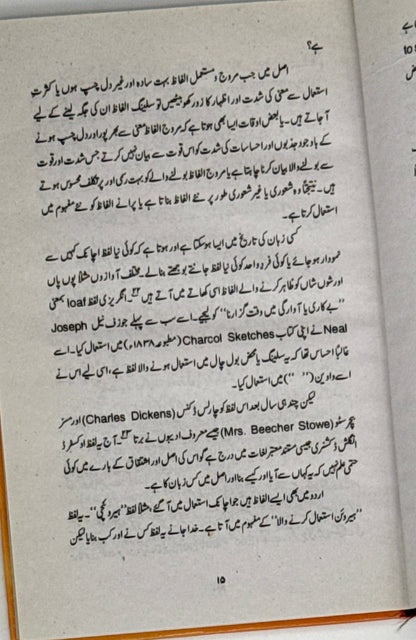 ہے؟
اصل میں جب مروج و مستعمل الفاظ بہت سادہ اور غیر دل چسپ ہوں یا کثرتِ
استعمال سے معنی کی شدت اور اظہار کا زور کھو بیٹھیں تو سلینگ الفاظ ان کی جگہ لینے کے لیے
آ جاتے ہیں۔ یا بعض اوقات ایسا بھی ہوتا ہے کہ مروج الفاظ معنی سے بھرپور اور دل چسپ ہونے
کے باوجود جذبوں اور احساسات کی شدت کو اس قوت سے بیان نہیں کرتے جس شدت اور قوت
سے بولنے والا بیان کرنا چاہتا ہے یا مروج الفاظ بولنے والے کو بہت رسمی اور پرتکلف محسوس ہوتے
ہیں۔ نتیجتاً وہ شعوری یا غیر شعوری طور پر نئے الفاظ بناتا ہے یا پرانے الفاظ کو نئے مفہوم میں
استعمال کرتا ہے۔
کسی زبان کی تاریخ میں ایسا ہو سکتا ہے اور ہوتا ہے کہ کوئی نیا لفظ اچانک کہیں سے
نمودار ہو جائے یا کوئی فردِ واحد کوئی نیا لفظ جانتے بوجھتے بنا لے۔ مختلف آوازوں مثلاً پوں پاں
اور شوں شاں کو ظاہر کرنے والے الفاظ اسی کھاتے میں آتے ہیں۔ انگریزی لفظ loaf بمعنی
''بے کاری یا آوارگی میں وقت گزارنا'' کو لیجیے۔ اسے سب سے پہلے جوزف نیل Joseph
Neal نے اپنی کتاب Charcol Sketches (مطبوعہ ۱۸۳۸ء) میں استعمال کیا۔ اسے
غالباً احساس تھا کہ یہ سلینگ یا محض بول چال میں استعمال ہونے والا لفظ ہے، اسی لیے اس نے
اسے واوین ('' '') میں استعمال کیا۔
لیکن چند ہی سال بعد اس لفظ کو چارلس ڈکنس (Charles Dickens) اور مسز
بیچر سٹو (Mrs. Beecher Stowe) جیسے معروف ادیبوں نے برتا۔ آج یہ لفظ اوکسفرڈ
انگلش ڈکشنری جیسی مستند لغت میں درج ہے گو اس کی اصل اور اشتقاق کے بارے میں کوئی
حتمی علم نہیں کہ یہ کہاں سے آیا اور کیسے بنا اور اصل میں کس زبان کا ہے۔
اردو میں بھی ایسے الفاظ ہیں جو اچانک استعمال میں آ گئے، مثلاً لفظ ''ہیروئنچی''۔ یہ لفظ
''ہیروئن استعمال کرنے والا'' کے مفہوم میں آتا ہے۔ خدا جانے یہ لفظ کس نے اور کب بنایا لیکن
۱۵